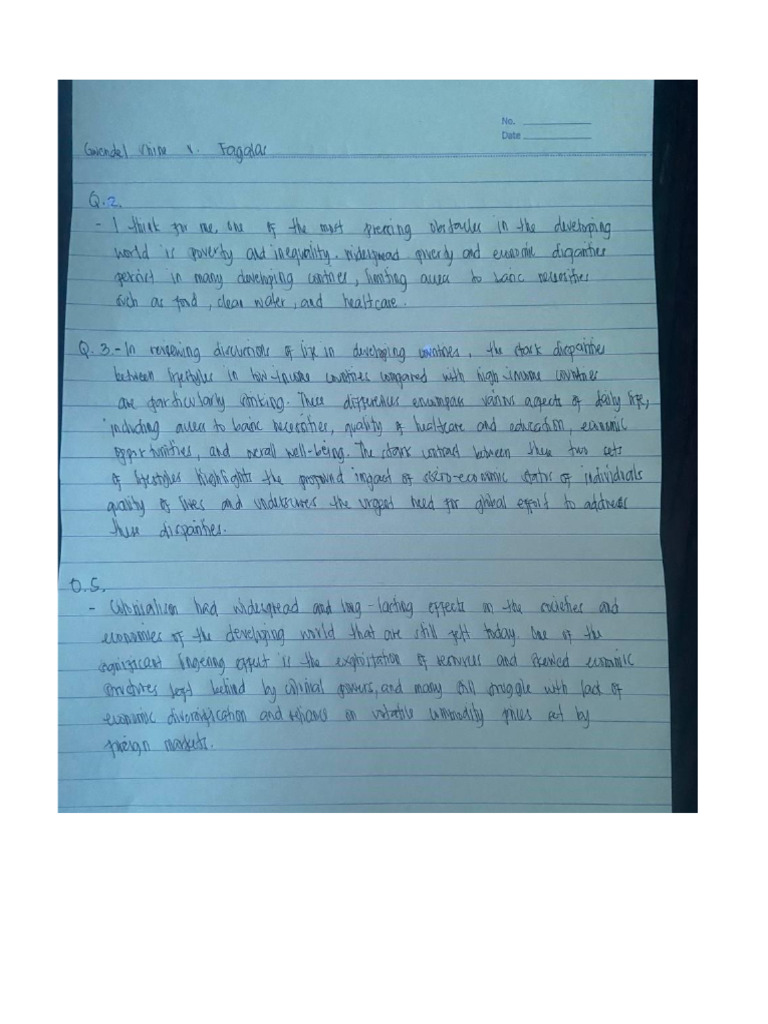 No.
Date
Gwendel v. Fagolar
Q.2.
- I think for me, one of the most piercing obstacles in the developing
world is poverty and inequality. widespread poverty and economic disparities
persist in many developing countries, limiting access to basic necessities
such as food, clean water, and healthcare.
Q. 3.- In reviewing discussions of life in developing countries, the stark disparities
between lifestyles in low-income countries compared with high-income countries
are particularly striking. These differences encompass various aspects of daily life,
including access to basic necessities, quality of healthcare and education, economic
opportunities, and overall well-being. The stark contrast between these two sets
of lifestyles highlights the profound impact of socio-economic status of individuals
quality of lives and underscores the urgent need for global effort to address
these disparities.
Q.5.
- Colonialism had widespread and long-lasting effects on the societies and
economies of the developing world that are still felt today. One of the
significant lingering effect is the exploitation of resources and skewed economic
structures left behind by colonial powers, and many still struggle with lack of
economic diversification and reliance on volatile commodity prices set by
foreign markets.